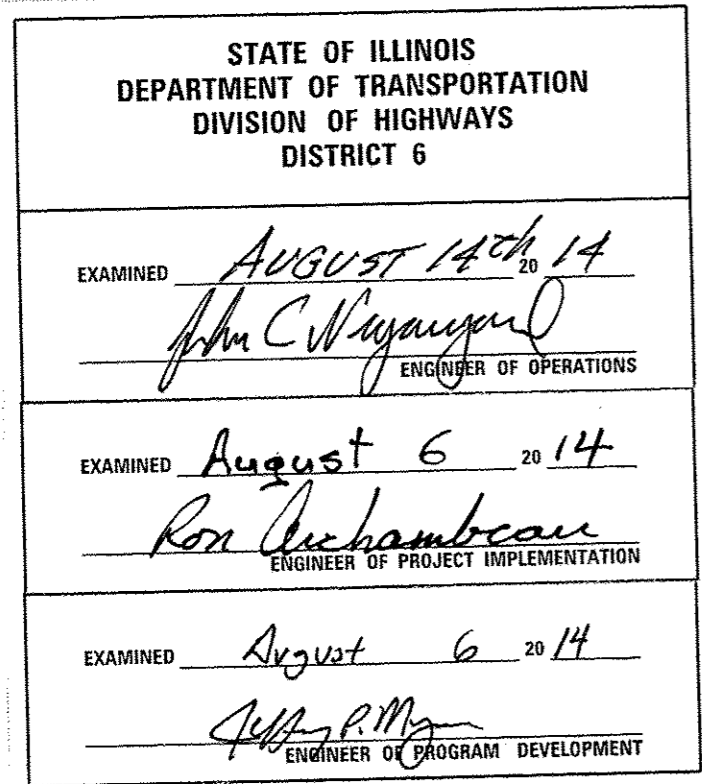 STATE OF ILLINOIS
DEPARTMENT OF TRANSPORTATION
DIVISION OF HIGHWAYS
DISTRICT 6
EXAMINED AUGUST 14th 20 14
John C
ENGINEER OF OPERATIONS
EXAMINED August 6 20 14
Ron Archambeau
ENGINEER OF PROJECT IMPLEMENTATION
EXAMINED August 6 20 14
Jeffrey P. Myers
ENGINEER OF PROGRAM DEVELOPMENT